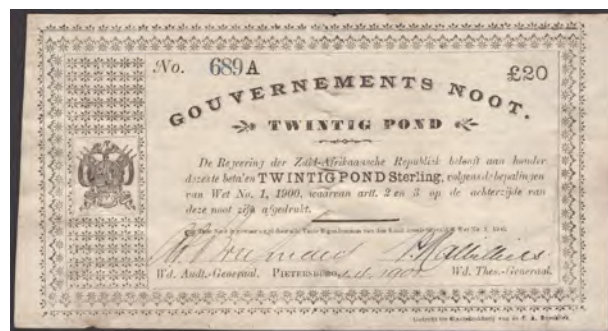 No. 689 A £20
GOUVERNEMENTS NOOT.
TWINTIG POND
De Regeering der Zuid-Afrikaansche Republiek belooft aan houder
dezes te betalen TWINTIG POND Sterling, volgens de bepalingen
van Wet No. 1, 1900, waarvan artt. 2 en 3 op de achterzijde van
deze noot zijn afgedrukt.
Wd. Audt.-Generaal. PIETERSBURG Wd. Thes.-Generaal.